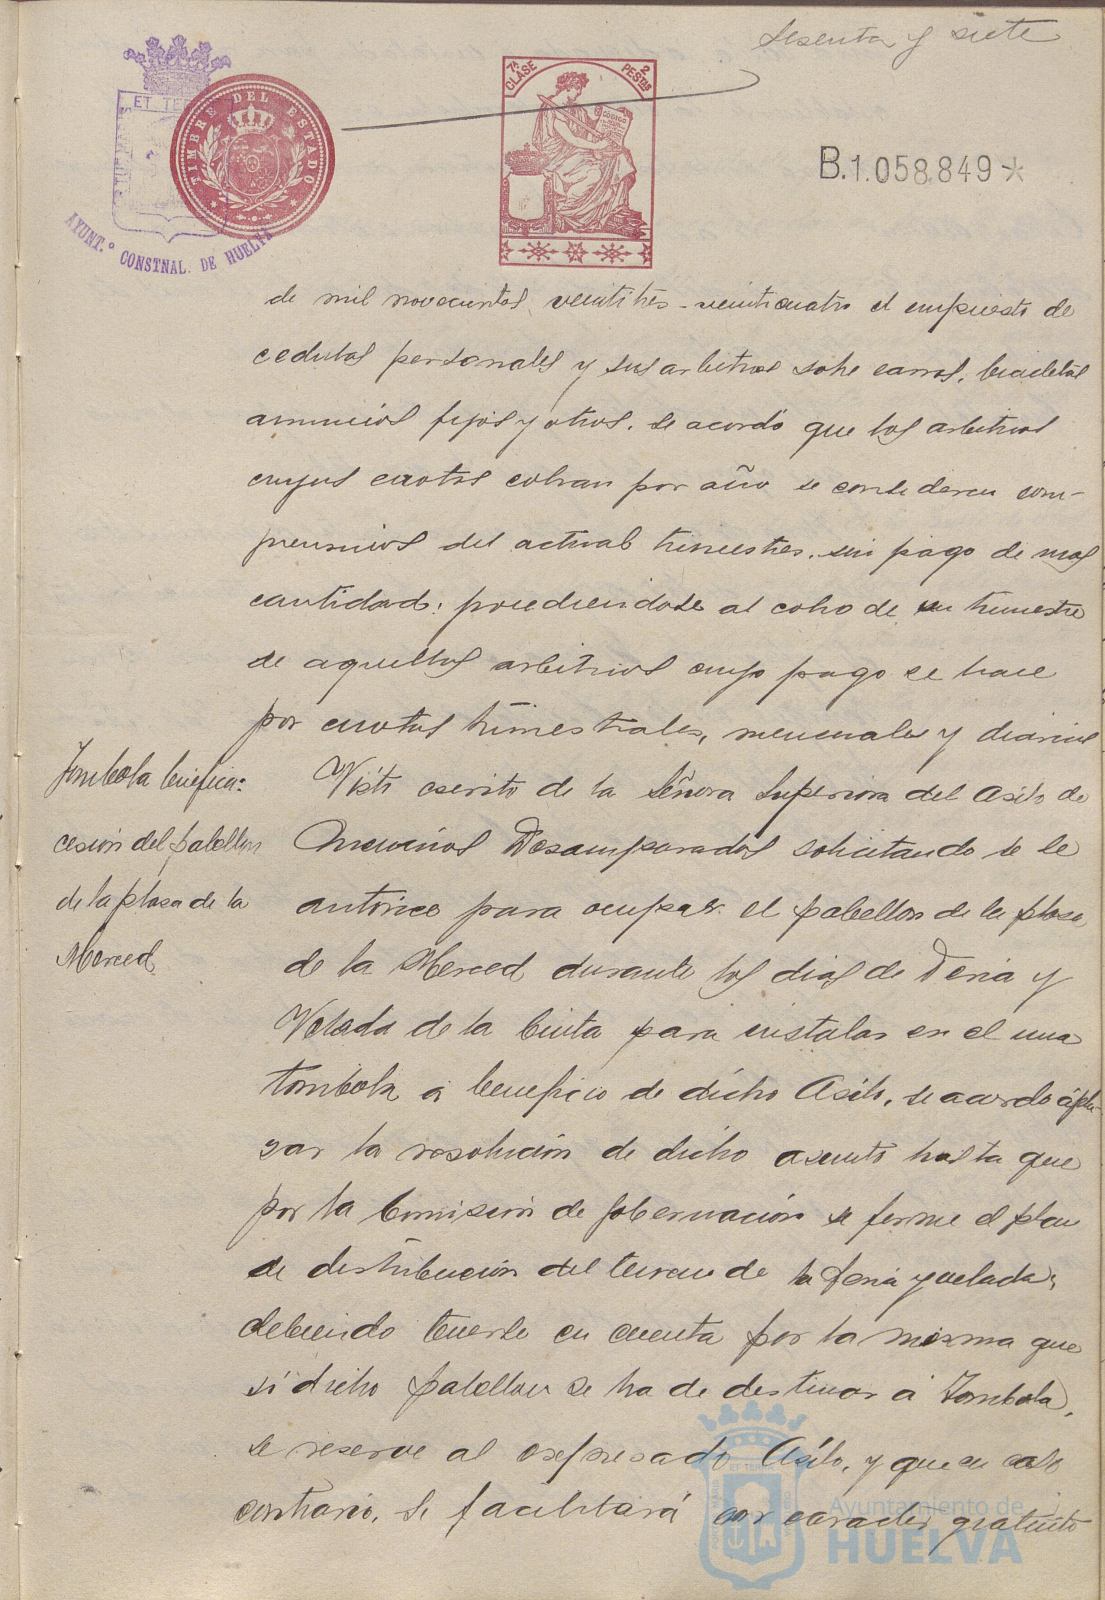 Sesenta y siete
ET TE
TIMBRE DEL ESTADO
AYUNT.º CONSTNAL. DE HUELVA
7ª CLASE
2 PESTAS
CODIGO
B.1.058.849*
de mil novecientos veintitres-veinticuatro el impuesto de
cedulas personales y sus arbitrios sobre carros, bicicletas
anuncios fijos y otros, se acordó que los arbitrios
cuyas cuotas cobran por año se consideren com-
prensivos del actual trimestre, sin pago de mas
cantidad; procediendose al cobro de un trimestre
de aquellos arbitrios cuyo pago se hace
por cuotas trimestrales, mensuales y diarias
Tombola benefica:
cesion del pabellon
de la plasa de la
Merced
Visto escrito de la Señora Superiora del Asilo de
Ancianos Desamparados solicitando se le
autorice para ocupar el pabellon de la plasa
de la Merced durante los dias de Feria y
Velada de la Cinta para instalar en el una
tombola a beneficio de dicho Asilo, se acordó apla-
zar la resolución de dicho asunto hasta que
por la Comision de Gobernación se forme el plan
de distribución del terreno de la feria y velada;
debiendo tenerse en cuenta por la misma que
si dicho pabellon se ha de destinar á Tombola,
se reserve al expresado Asilo, y que en caso
contrario, se facilitará con caracter gratuito
Ayuntamiento de
HUELVA